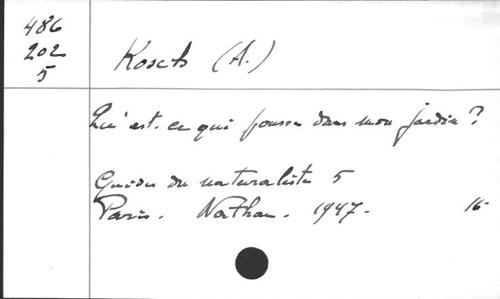 486
202
5
Kosch (A.)
Qu'est-ce qui pousse dans mon jardin ?
Guides du naturaliste 5
Paris. Nathan. 1947. 16